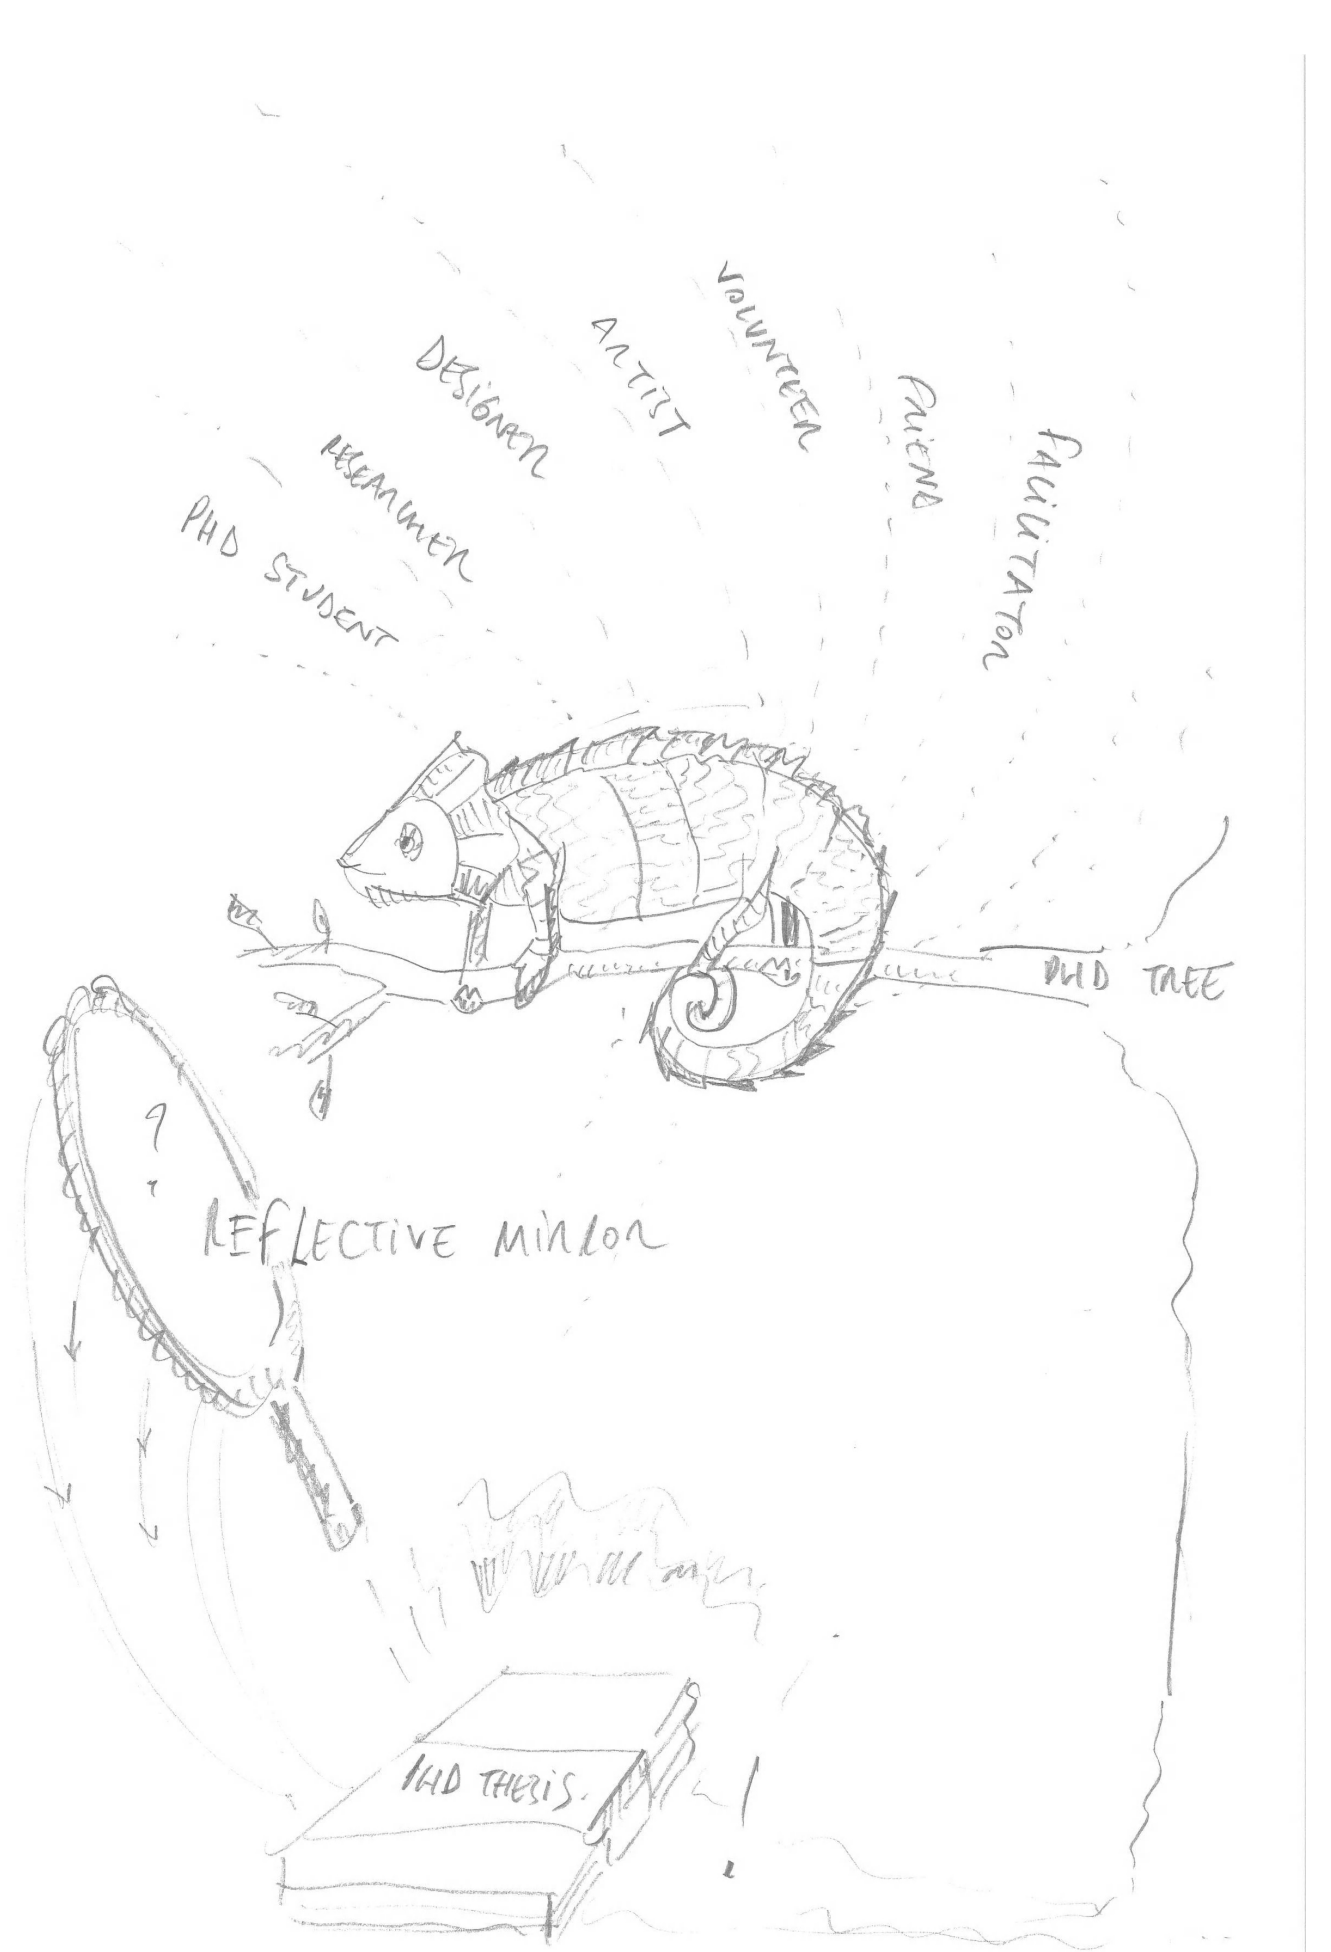 PHD STUDENT
RESEARCHER
DESIGNER
ARTIST
VOLUNTEER
FRIEND
FACILITATOR
PHD TREE
?
REFLECTIVE MIRROR
PHD THESIS.
!